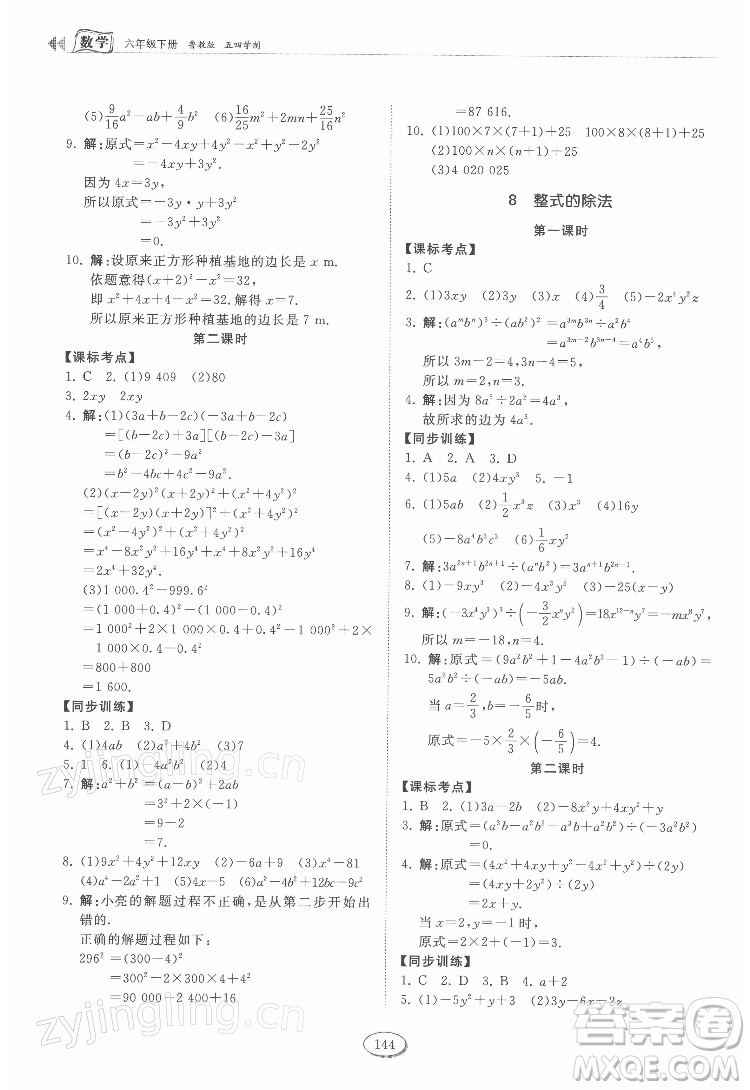 数学 六年级下册 鲁教版 五四学制
(5)9/16a²-ab+4/9 (6)16/25m²+2mn+25/16n²
9. 解:原式=x²-4xy+4y²-x²-y²
=-4xy+3y².
因为4x=3y,
所以原式=-3y·y+3y²
=-3y²+3y²
=0.
10. 解:设原来正方形种植基地的边长是x m.
依题意得(x+2)²-x²=32,
即x²+4x+4-x²=32.解得x=7.
所以原来正方形种植基地的边长是7 m.
第二课时
【课标考点】
1. C 2. (1)9 409 (2)80
3. 2xy 2xy
4. 解:(1)(3a+b-2c)(-3a+b-2c)
=[(b-2c)+3a][(b-2c)-3a]
=(b-2c)²-9a²
=b²-4bc+4c²-9a².
(2)(x-2y)²(x+2y)²+(x²+4y²)²
=[(x-2y)(x+2y)]²+(x²+4y²)²
=(x²-4y²)²+(x²+4y²)²
=x⁴-8x²y²+16y⁴+x⁴+8x²y²+16y⁴
=2x⁴+32y⁴.
(3)1 000.4²-999.6²
=(1 000+0.4)²-(1 000-0.4)²
=1 000²+2×1 000×0.4+0.4²-1 000²+2×
1 000×0.4-0.4²
=800+800
=1 600.
【同步训练】
1. B 2. B 3. D
4. (1)4ab (2)4ab (3)7
5. 1 6. (1)-4 (2)-4
7. 解:a²+b²=(a-b)²+2ab
=3²+2×(-1)
=9-2
=7.
8. (1)9x²+4y²+12xy (2)-6a+9 (3)x⁴-81
(4)a⁴-2a²+1 (5)4a²+b²-4ab-12a+6b+9 (6)a²-4b²+12bc-9c²
9. 解:小亮的解题过程不正确,是从第二步开始出
错的.
正确的解题过程如下:
296²=(300-4)²
=300²-2×300×4+4²
=90 000-2 400+16
=87 616.
10. (1)100×7×(7+1)+25 100×8×(8+1)+25
(2)100×n×(n+1)+25
(3)4 020 025
8 整式的除法
第一课时
【课标考点】
1. C
2. (1)3xy (2)3xy (3)x (4)3/4 (5)-4x²y²z
3. 解:(aᵐbⁿ)³÷(ab²)²=a³ᵐb³ⁿ÷a²b⁴
=a³ᵐ⁻²b³ⁿ⁻⁴=a⁴b⁵.
所以3m-2=4,3n-4=5.
所以m=2,n=3.
4. 解:因为8a⁵÷2a²=4a³,
故所求的边为4a³.
【同步训练】
1. A 2. A 3. D
4. (1)5a (2)4xy³ 5. -1
6. (1)5ab (2)1/2x³z (3)x³ (4)16y
(5)-8a⁴b³c³ (6)1/6xy²
7. 解:3a²ˢ⁺¹b²ˢ⁺¹÷(ab)ˢ=3aˢ⁺¹b²ⁿ⁻¹.
8. (1)-9xy³ (2)4xy² (3)-2(x-y)
9. 解:(-3x⁴y³)³÷(-3/2xⁿy²)=18x¹²⁻ⁿy⁷=-mx⁸y⁷,
所以m=-18,n=4.
10. 解:原式=(9a²b²-4a²b²)÷(-ab)=
5a²b²÷(-ab)=-5ab.
当a=2/3,b=-6/5时,
原式=-5×2/3×(-6/5)=4.
第二课时
【课标考点】
1. B 2. (1)3a-2b (2)-8x²+4xy+y²
3. 解:原式=(a³b-a³b)÷(a³b)
=0.
4. 解:原式=(4x²+4xy+y²-y²)÷2x
=(4xy+4x²)÷2x
=2y+2x.
当x=3,y=-1时,
原式=-2+2×3=4.
【同步训练】
1. C 2. D 3. C 4. a+2
144
zyjingling.cn
zyjingling.cn
答案圈
MXQE.COM